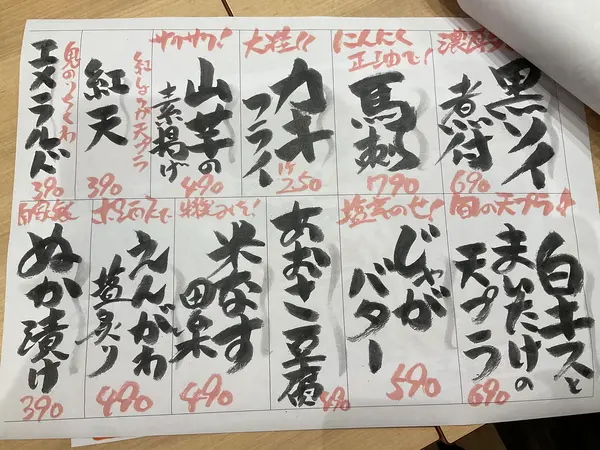 濃厚
黒ソイ
煮付
690
にんにく
正油で!
馬刺
790
大粒!!
カキ
フライ
1ケ
250
サクサク!!
山芋の
素揚げ
490
紅しょうが天プラ
紅天
390
エメラルド
390
旬の天プラ!!
白キスと
まいたけの
天プラ
690
塩気のせ!
じゃが
バター
590
あおさ豆腐
490
米なす
田楽
490
えんがわ
塩炙り
490
自家製
ぬか漬け
390